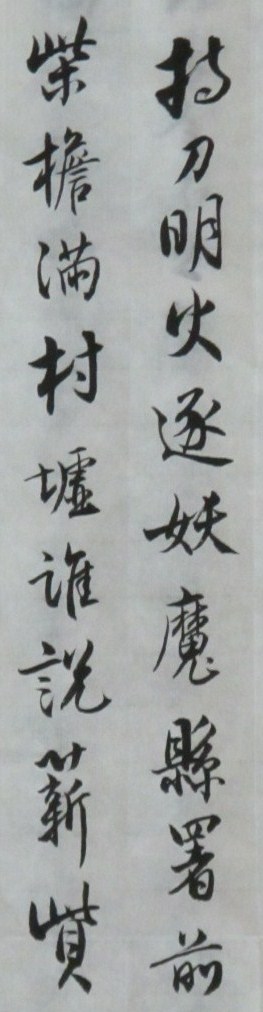 持刀明火逐妖魔縣署前
柴檐滿村墟誰説薪貲